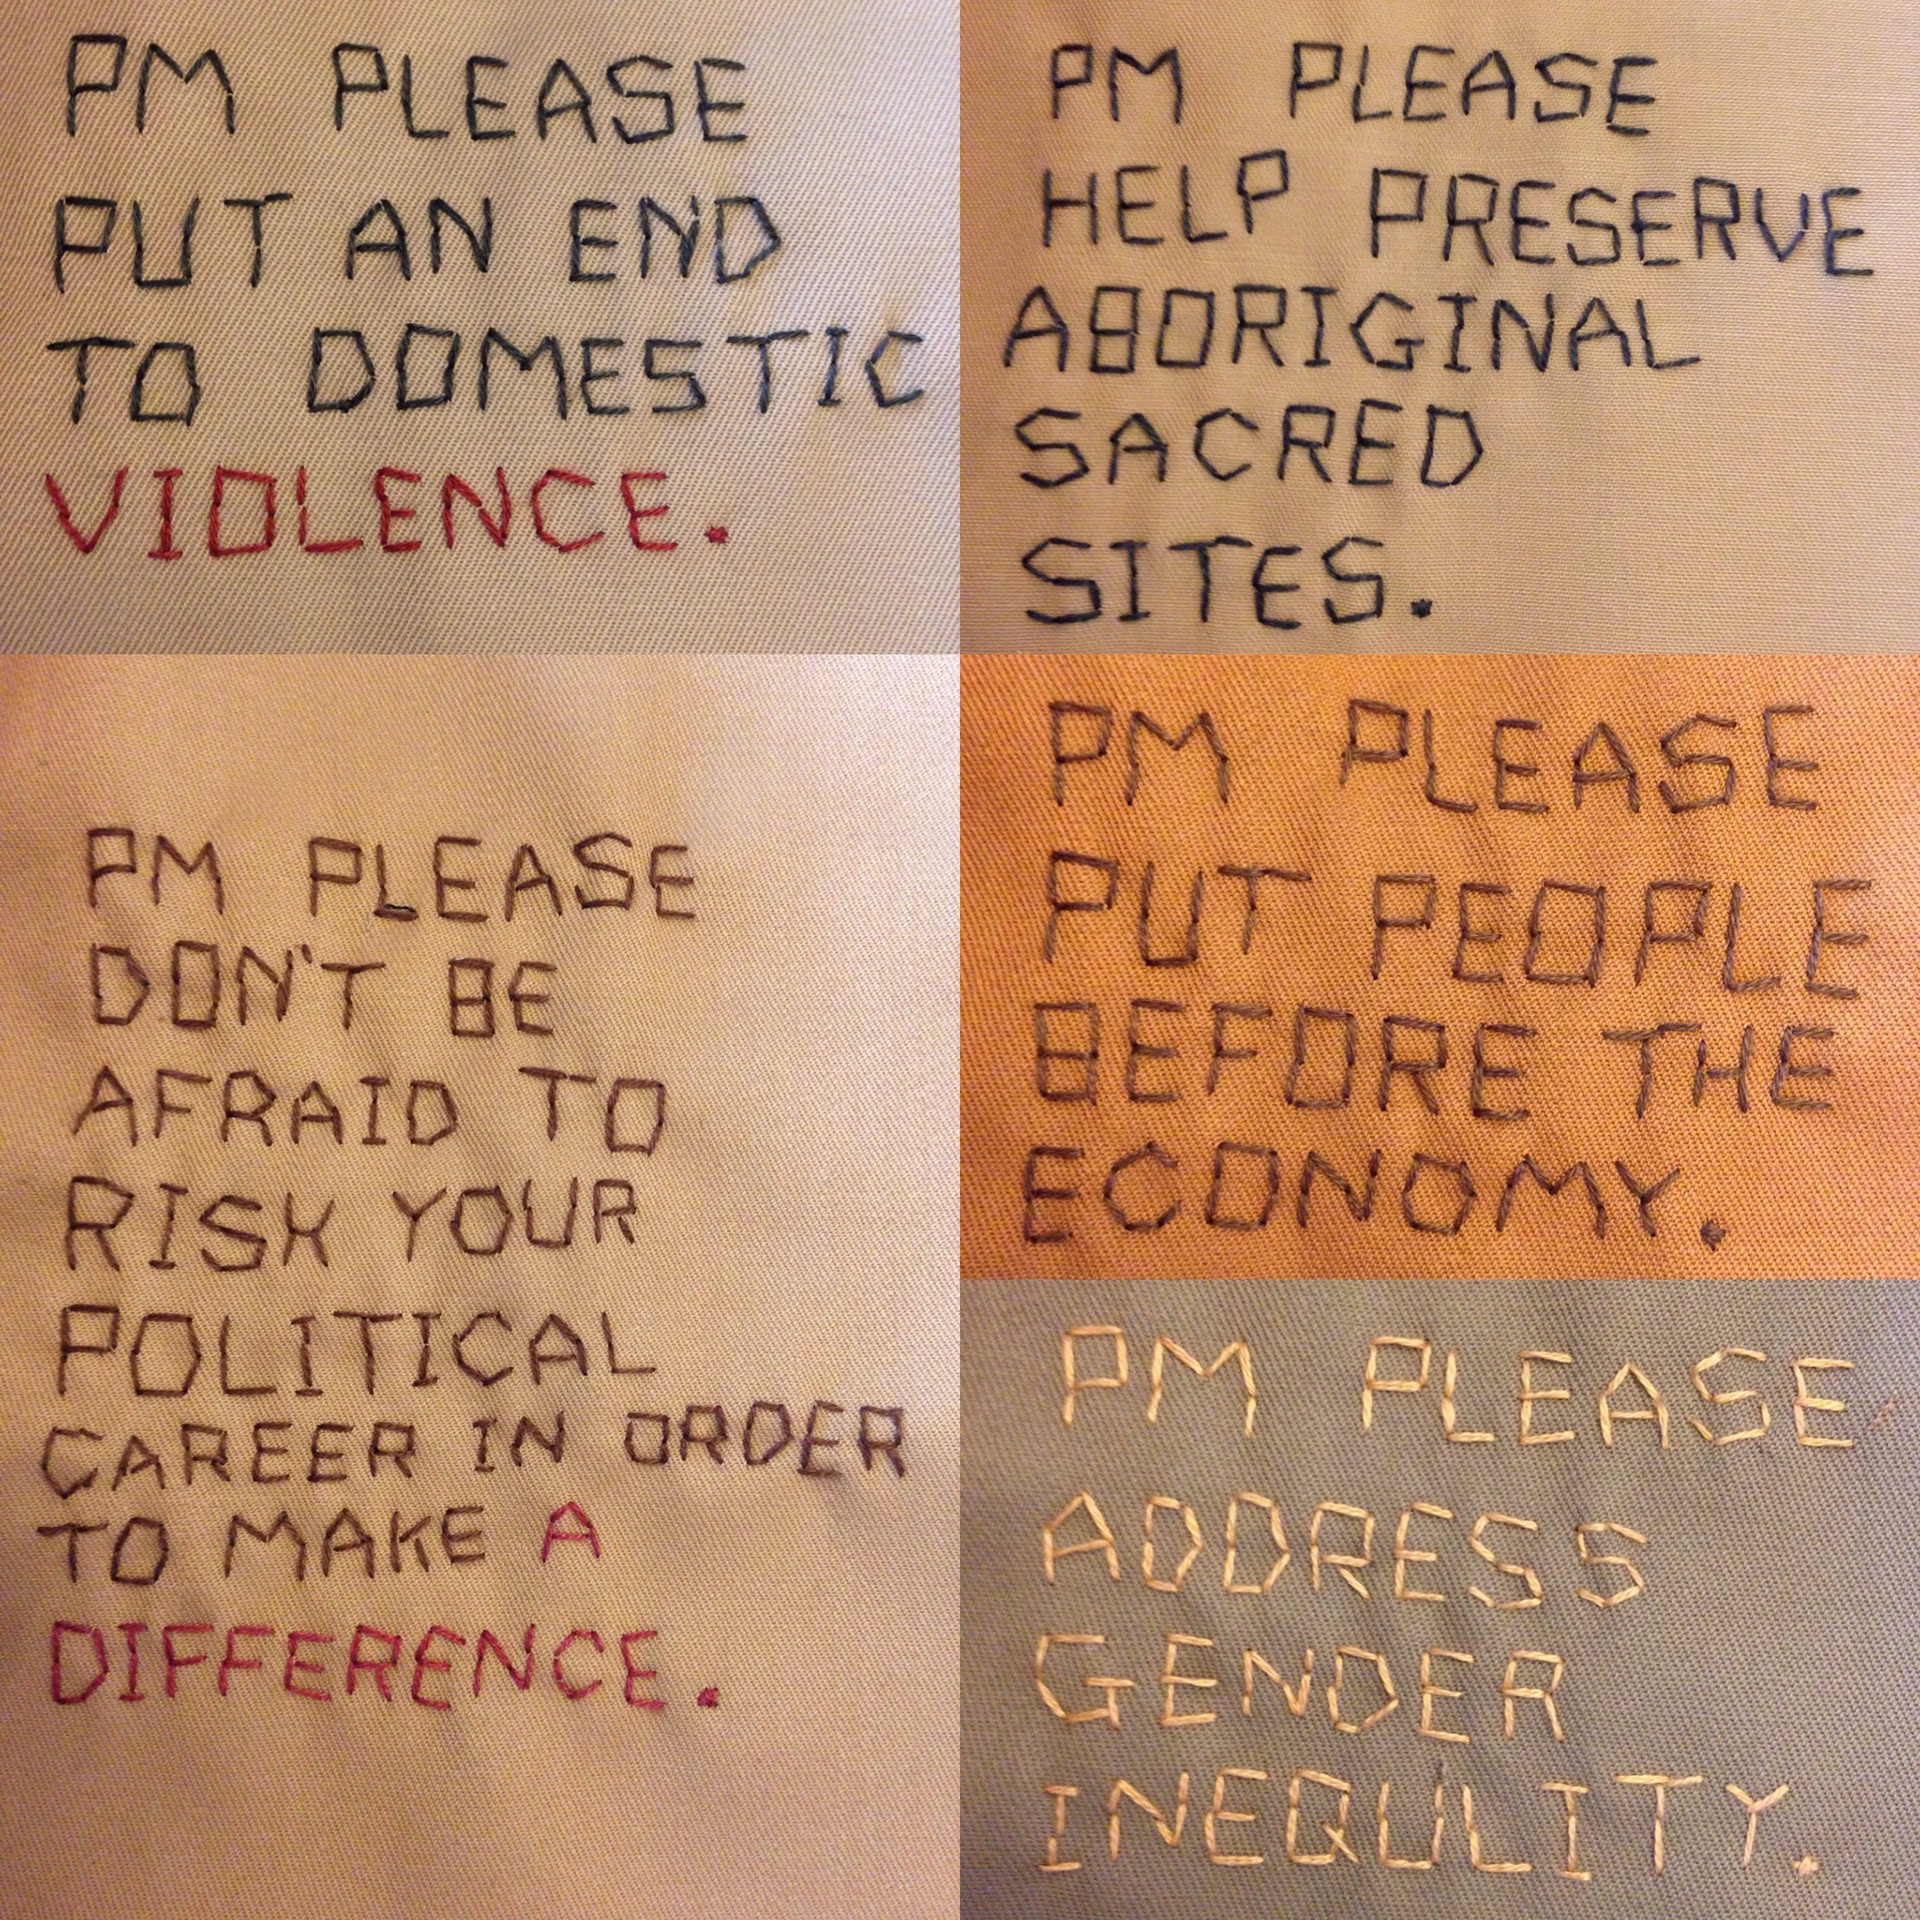 PM PLEASE
PUT AN END
TO DOMESTIC
VIOLENCE.
PM PLEASE
HELP PRESERVE
ABORIGINAL
SACRED
SITES.
PM PLEASE
DON'T BE
AFRAID TO
RISK YOUR
POLITICAL
CAREER IN ORDER
TO MAKE A
DIFFERENCE.
PM PLEASE
PUT PEOPLE
BEFORE THE
ECONOMY.
PM PLEASE
ADDRESS
GENDER
INEQULITY.